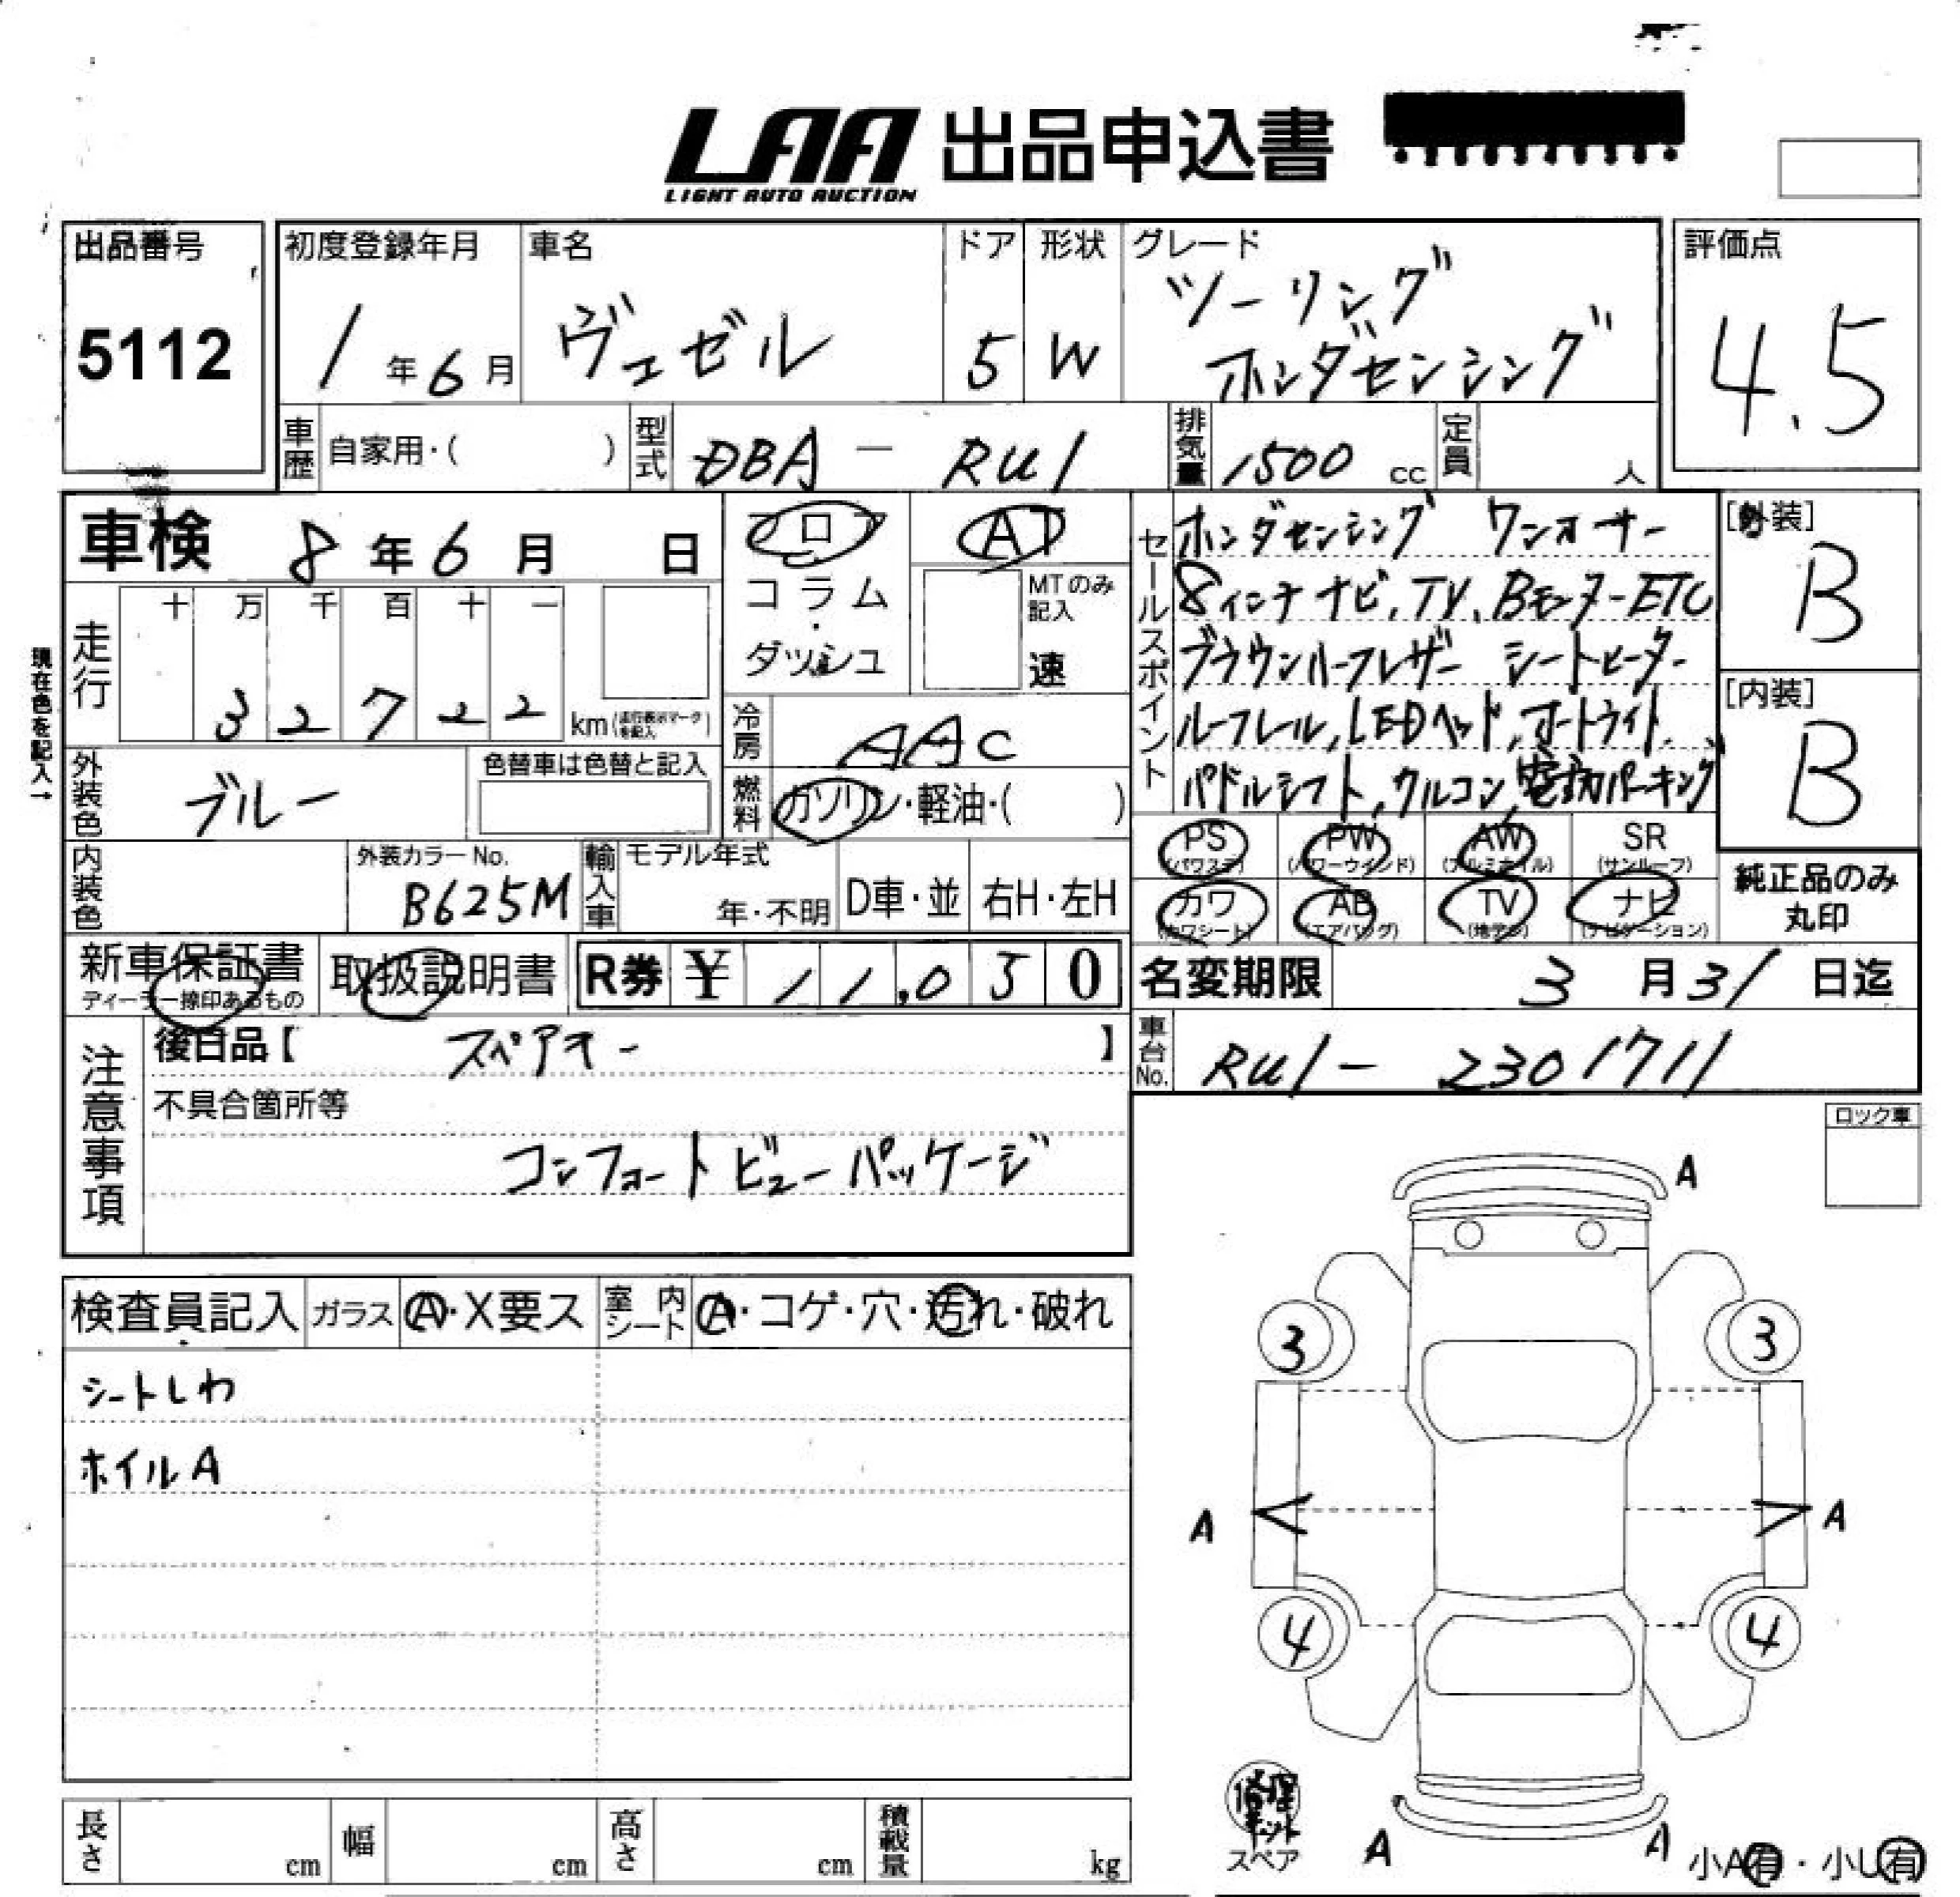 LAA 出品申込書
LIGHT AUTO AUCTION
出品番号
5112
初度登録年月
1年6月
車名
ヴェゼル
ドア
5
形状
W
グレード
ツーリング
ホンダセンシング
評価点
4.5
車歴 自家用・( )
型式 DBA - RU1
排気量 1500 cc
定員 人
車検 8年6月 日
フロア
コラム
・
ダッシュ
AT
MTのみ
記入
速
走行
十 万 千 百 十 一
3 2 7 2 2 km(走行表示マークを記入)
現在色を記入→
冷房 AAC
燃料 ガソリン・軽油・( )
外装色 ブルー
色替車は色替と記入
内装色
外装カラーNo.
B625M
輸入車
モデル年式
年・不明
D車・並
右H・左H
セールスポイント
ホンダセンシング ワンオーナー
8インチナビ,TV,BモニターETC
ブラウンハーフレザー シートヒーター
ルーフレール,LEDヘッド,オートライト,
パドルシフト,クルコン,電動パーキング
[外装]
B
[内装]
B
PS
(パワステ)
PW
(パワーウインド)
AW
(アルミホイル)
SR
(サンルーフ)
カワ
(カワシート)
AB
(エアバッグ)
TV
(地デジ)
ナビ
(ナビゲーション)
純正品のみ
丸印
新車保証書
ディーラー捺印あるもの
取扱説明書
R券 ¥ 11,050
名変期限 3月31日迄
車台No. RU1-2301711
注意事項
後日品【 スペアキー 】
不具合箇所等
コンフォートビューパッケージ
ロック車
検査員記入
ガラス A・X要ス
室内シート A・コゲ・穴・汚れ・破れ
シートしわ
ホイルA
A
3 3
A A
4 4
修理キット
スペア
A A
小A有・小U有
長さ cm
幅 cm
高さ cm
積載量 kg